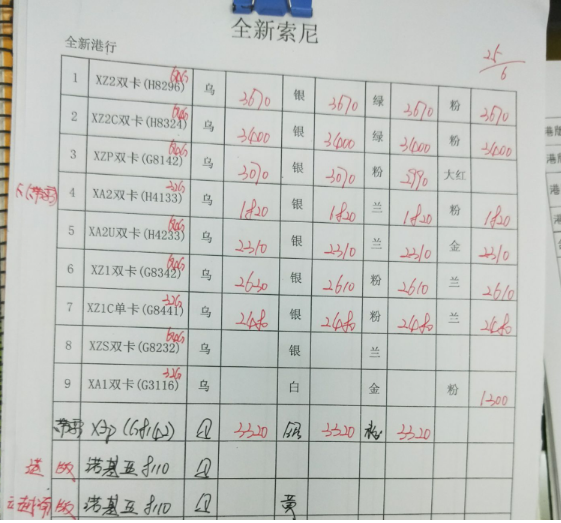 全新索尼
全新港行
25/6
1 XZ2双卡(H8296) 64G 乌 3670 银 3670 绿 3670 粉 3670
2 XZ2C双卡(H8324) 64G 乌 3400 银 3400 绿 3400 粉 3400
3 XZP双卡(G8142) 64G 乌 3070 银 3070 粉 2990 大红
4 XA2双卡(H4133) 32G 乌 1820 银 1820 兰 1820 粉 1820
5 XA2U双卡(H4233) 64G 乌 2310 银 2310 兰 2310 金 2310
6 XZ1双卡(G8342) 64G 乌 2630 银 2610 粉 2610 兰 2610
7 XZ1C单卡(G8441) 32G 乌 2480 银 2480 粉 2480 兰 2480
8 XZS双卡(G8232) 64G 乌 银 兰
9 XA1双卡(G3116) 32G 乌 白 金 粉 1300
XZP (G8142) 3320 银 3320 粉 3320
港 版 诺基亚8110
版 诺基亚8110 黄
港版
港
港